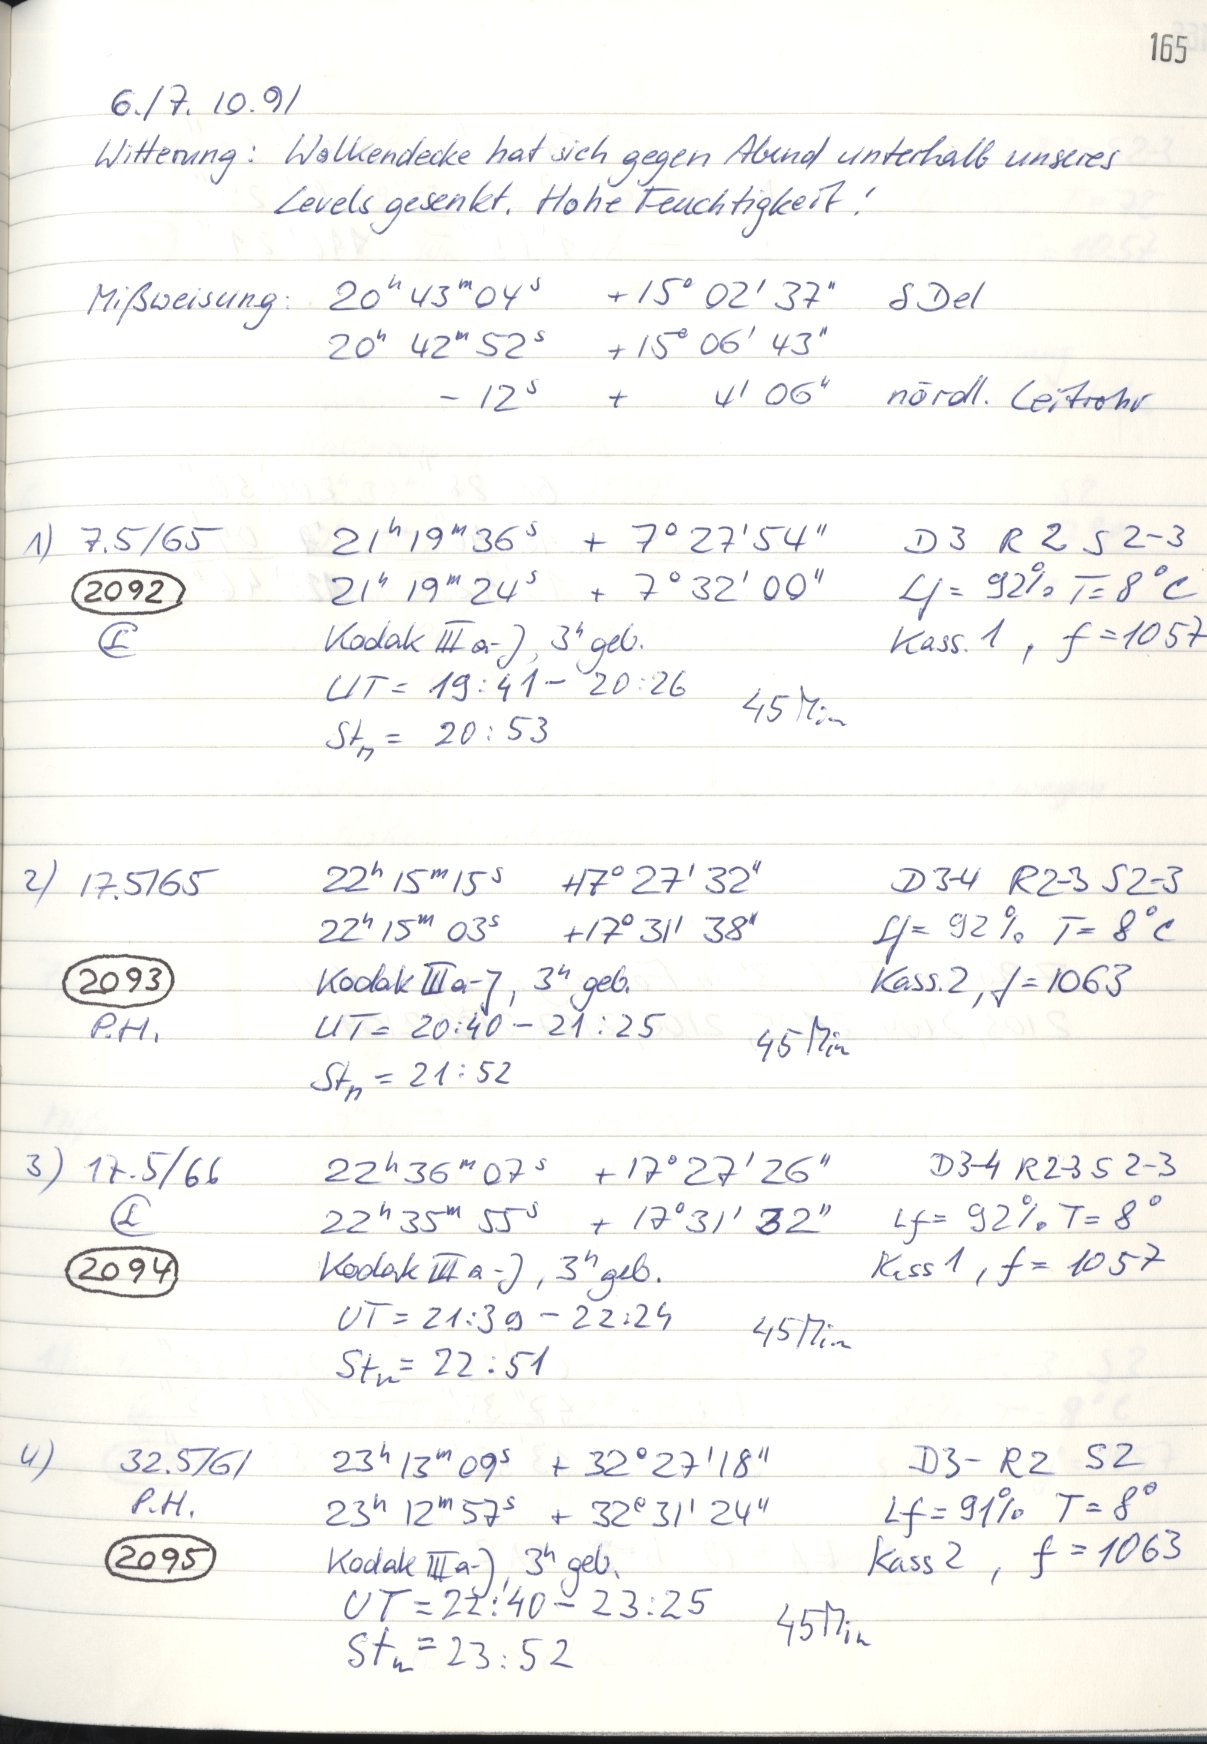 165
6./7. 10.91
Witterung: Wolkendecke hat sich gegen Abend unterhalb unseres
Levels gesenkt. Hohe Feuchtigkeit!
Mißweisung: 20h 43m 04s +15° 02' 37" δ Del
20h 42m 52s +15° 06' 43"
- 12s + 4' 06" nördl. Leitrohr
1) 7.5/65 21h 19m 36s + 7° 27' 54" D3 R2 S2-3
2092 21h 19m 24s + 7° 32' 00" Lf = 92% T = 8°C
Kodak IIIa-J, 3h geb. Kass. 1, f = 1057
UT = 19:41 - 20:26 45 Min
Stn = 20:53
2) 17.5/65 22h 15m 15s +17° 27' 32" D3-4 R2-3 S2-3
22h 15m 03s +17° 31' 38" Lf = 92% T = 8°C
2093 Kodak IIIa-J, 3h geb. Kass. 2, f = 1063
P.H. UT = 20:40 - 21:25 45 Min
Stn = 21:52
3) 17.5/66 22h 36m 07s +17° 27' 26" D3-4 R2-3 S2-3
22h 35m 55s + 17° 31' 32" Lf = 92% T = 8°
2094 Kodak IIIa-J, 3h geb. Kass 1, f = 1057
UT = 21:39 - 22:24 45 Min
Stn = 22:51
4) 32.5/61 23h 13m 09s + 32° 27' 18" D3- R2 S2
P.H. 23h 12m 57s + 32° 31' 24" Lf = 91% T = 8°
2095 Kodak IIIa-J, 3h geb. Kass 2, f = 1063
UT = 22:40 - 23:25 45 Min
Stn = 23:52